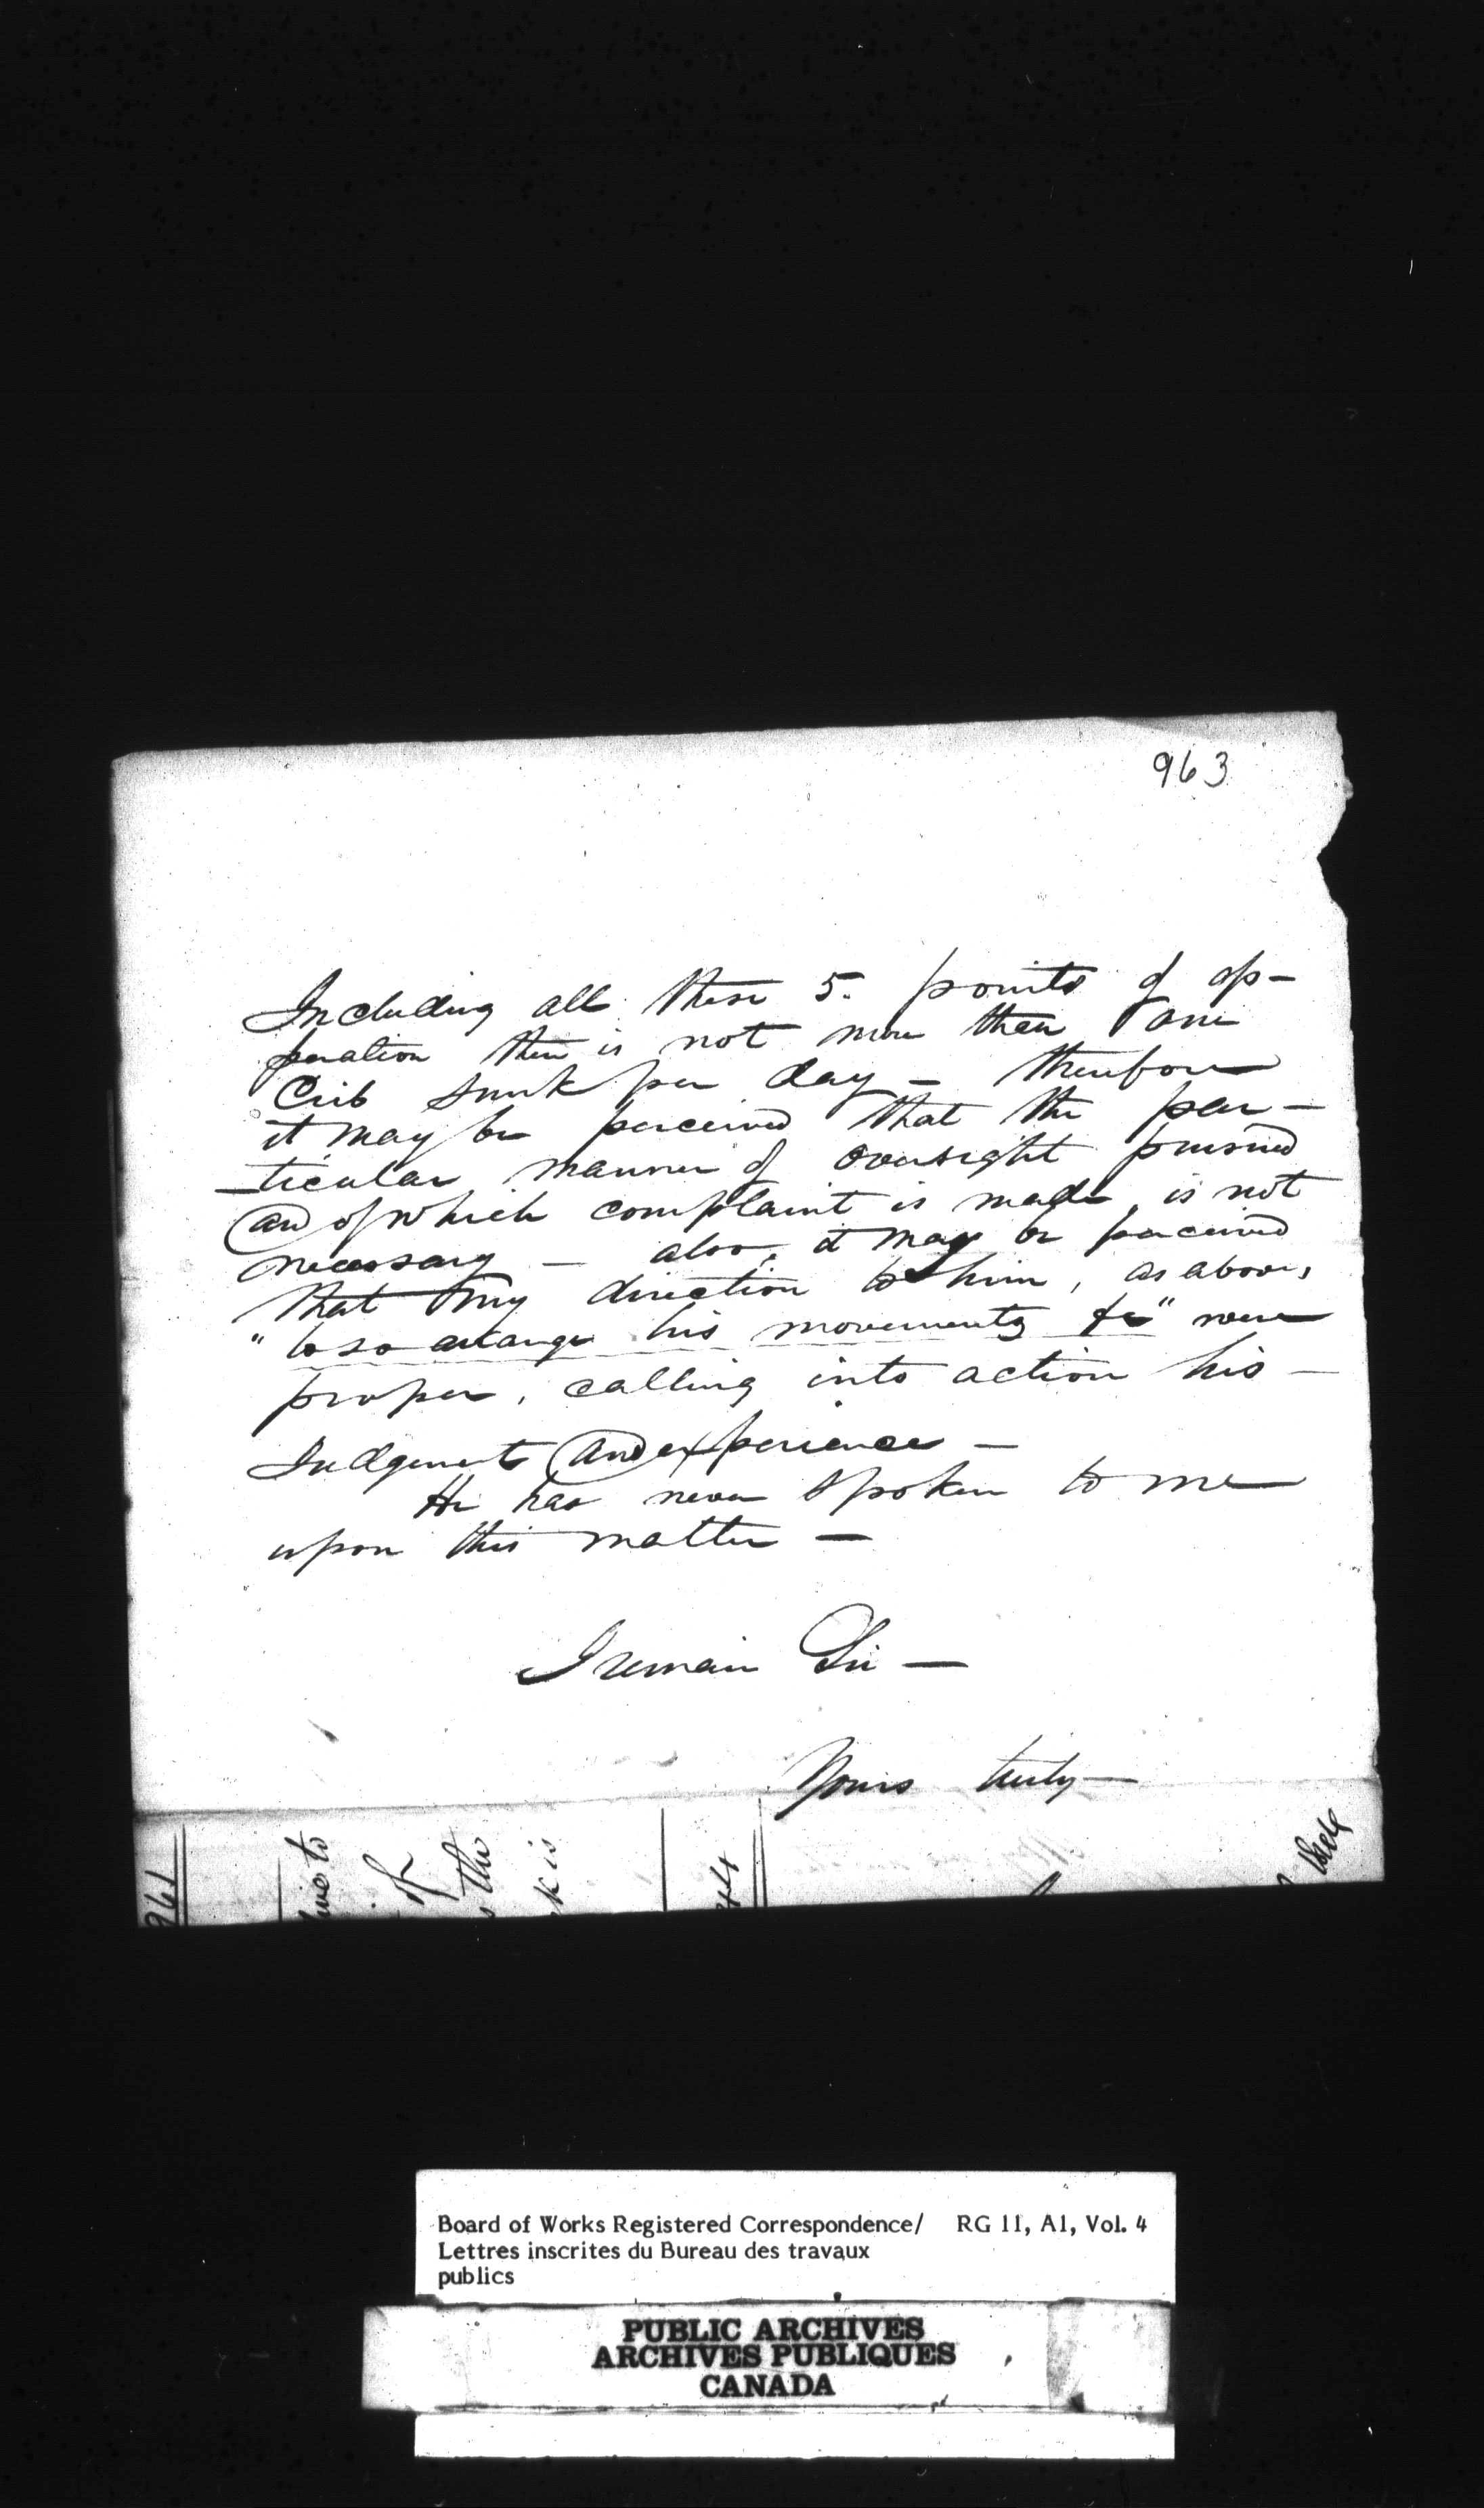 963
Including all these 5. points of op-
peration there is not more than one
Crib sunk per day - therefore
it may be perceived that the par-
-ticular manner of oversight pursued
and of which complaint is made, is not
necessary - also, it may be perceived
that my direction to him, as above,
"to so arrange his movements &c" were
proper, calling into action his -
Judgement and experience -
He has never spoken to me
upon this matter -
I remain Sir -
Yours truly -
961
of
the
k is
44
Board of Works Registered Correspondence/ RG 11, A1, Vol. 4
Lettres inscrites du Bureau des travaux
publics
PUBLIC ARCHIVES
ARCHIVES PUBLIQUES
CANADA